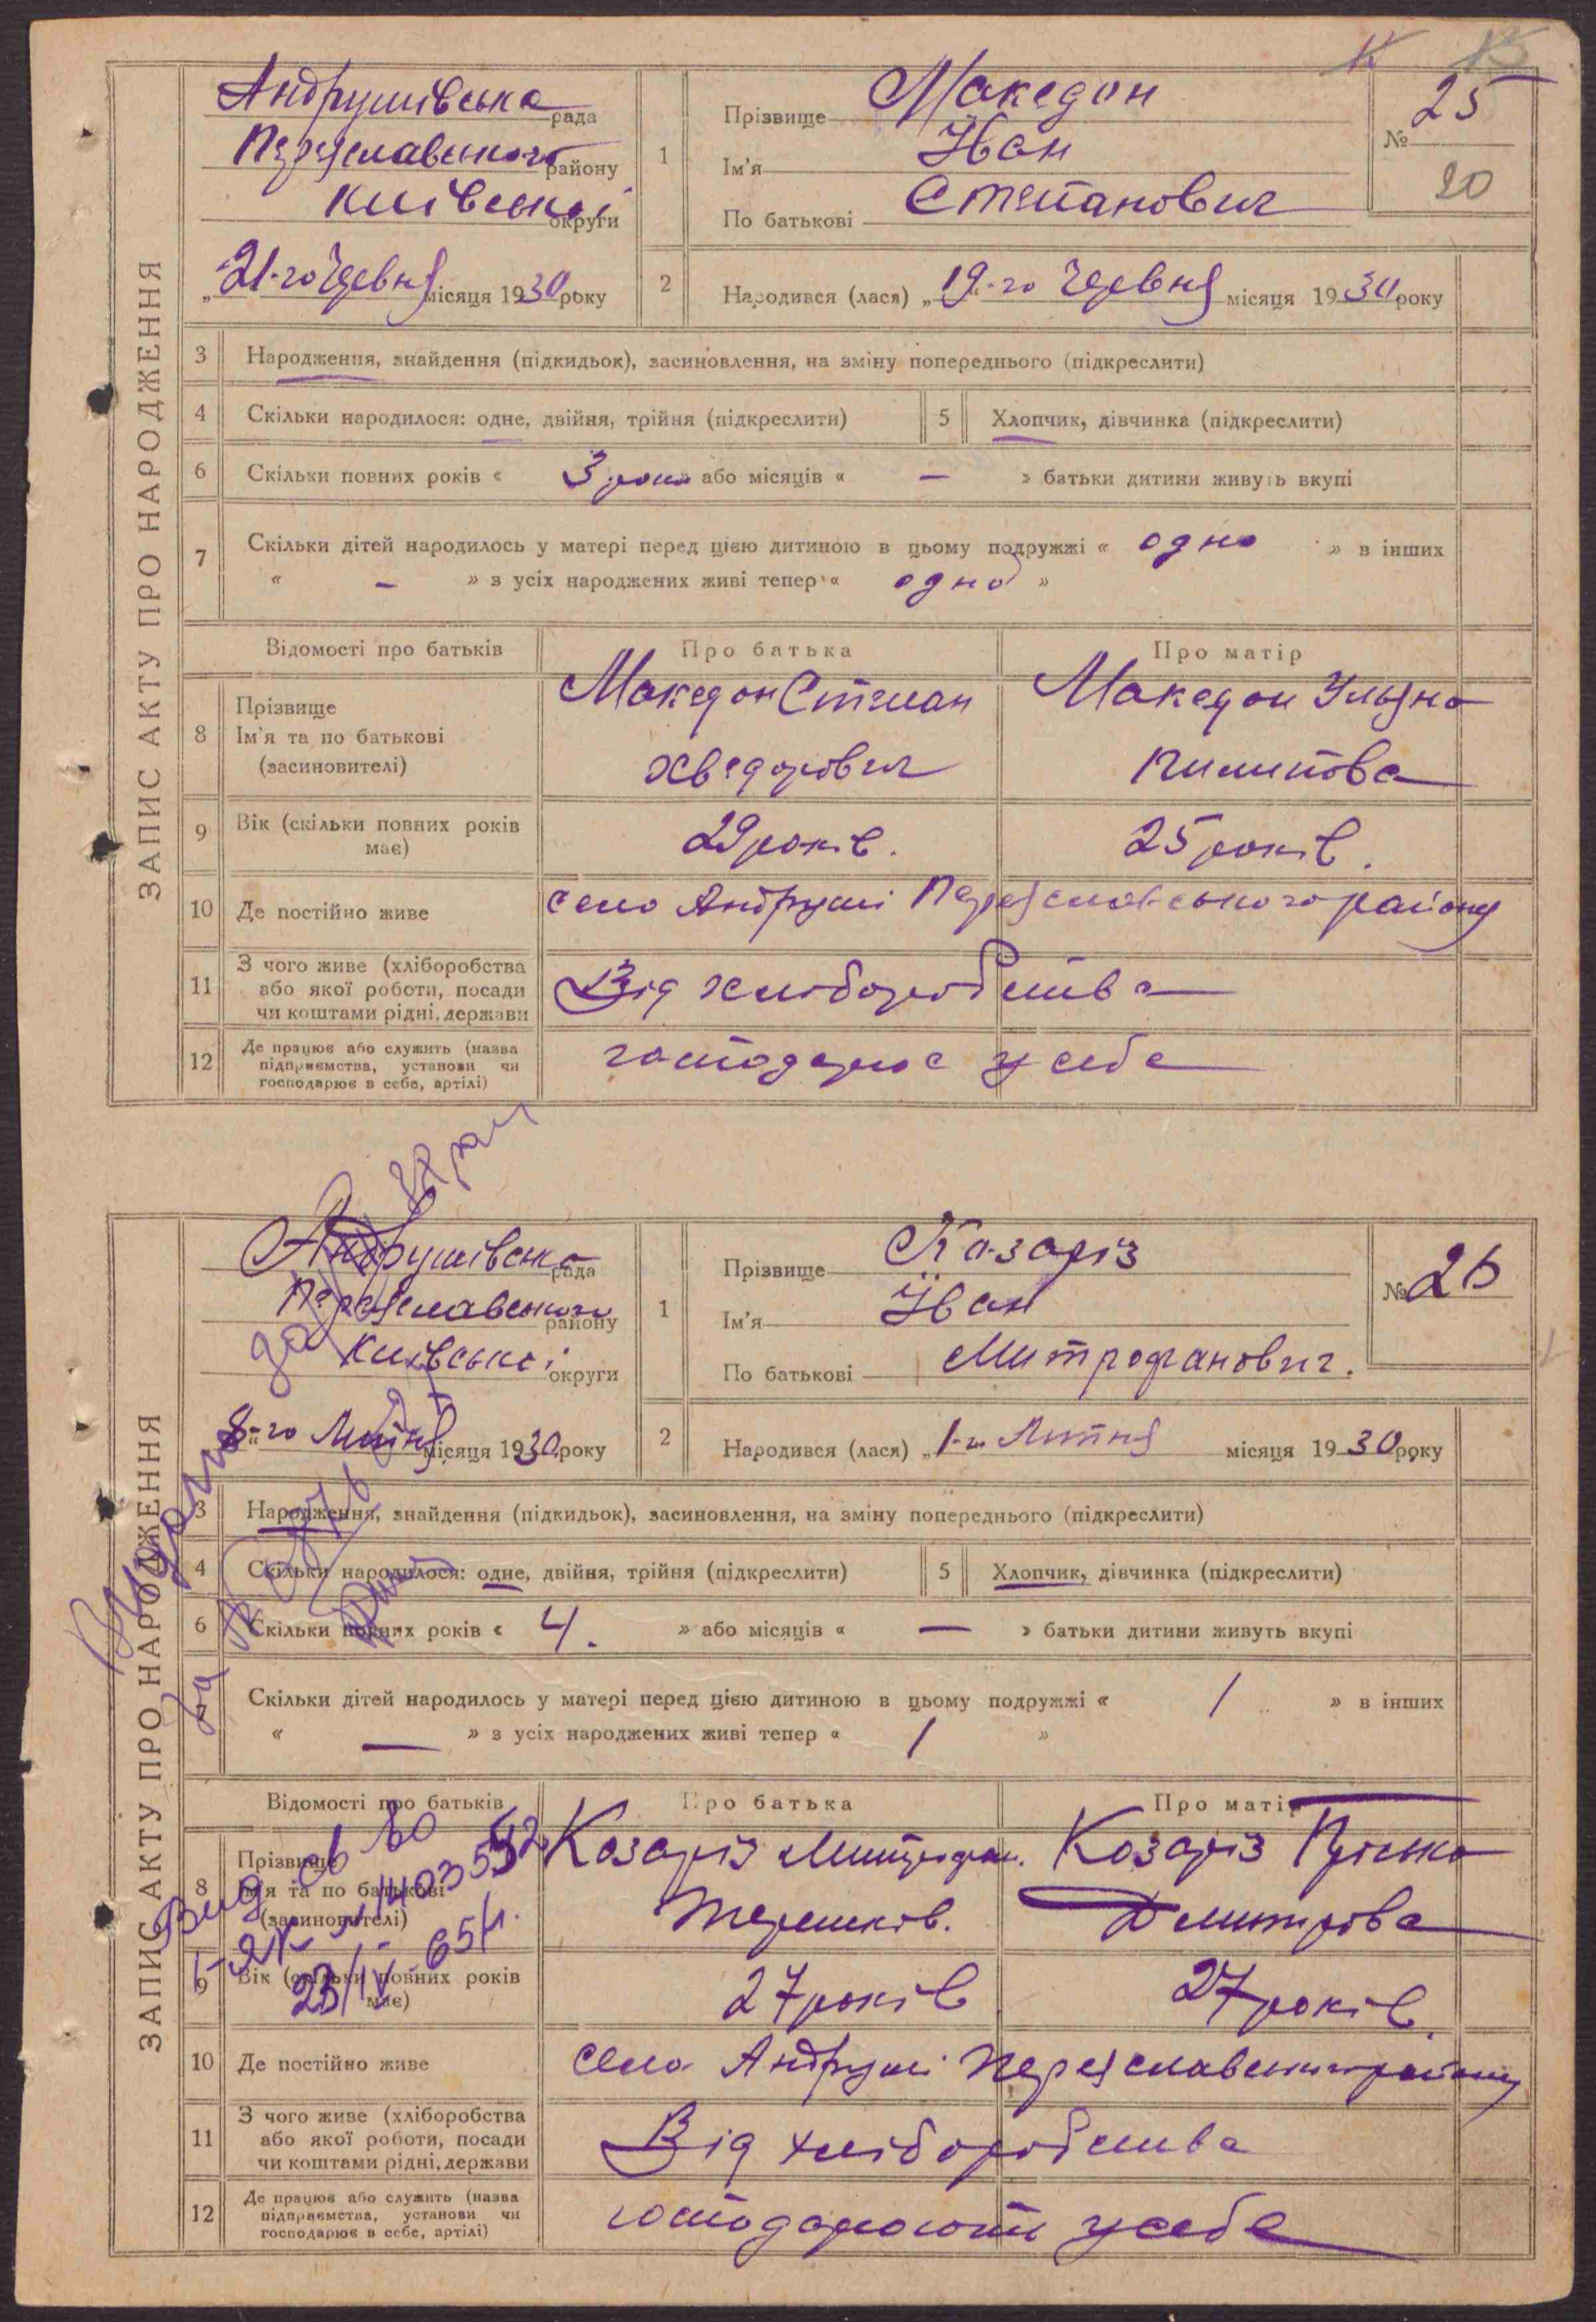 К
25
20
ЗАПИС АКТУ ПРО НАРОДЖЕННЯ
Андрушівська рада
Переяславського району
Київської округи
„21-го Червня місяця 1930 року
1
Прізвище Македон
Ім'я Іван
По батькові Степанович
№ 25
2 Народився (лася) „19"-го Червня місяця 1930 року
3 Народження, знайдення (підкидьок), засиновлення, на зміну попереднього (підкреслити)
4 Скільки народилося: одне, двійня, трійня (підкреслити) 5 Хлопчик, дівчинка (підкреслити)
6 Скільки повних років « 3 роки або місяців « — » батьки дитини живуть вкупі
7 Скільки дітей народилось у матері перед цією дитиною в цьому подружжі « одно » в інших
« — » з усіх народжених живі тепер « одно »
Відомості про батьків Про батька Про матір
8 Прізвище Ім'я та по батькові (засиновителі)
Македон Степан Македон Уляна
Хведорович Пилипова
9 Вік (скільки повних років має) 29 років. 25 років.
10 Де постійно живе село Андруші Переяславського району
11 З чого живе (хліборобства або якої роботи, посади чи коштами рідні, держави Від хліборобства
12 Де працює або служить (назва підприємства, установи чи господарює в себе, артілі) господарює у себе
ЗАПИС АКТУ ПРО НАРОДЖЕННЯ
Андрушівська рада
Переяславського району
Київської округи
8-го Липня місяця 1930 року
1
Прізвище Козаріз
Ім'я Іван
По батькові Митрофанович.
№ 26
2 Народився (лася) „1-го Липня місяця 1930 року
3 Народження, знайдення (підкидьок), засиновлення, на зміну попереднього (підкреслити)
4 Скільки народилося: одне, двійня, трійня (підкреслити) 5 Хлопчик, дівчинка (підкреслити)
6 Скільки повних років « 4. » або місяців « — » батьки дитини живуть вкупі
Скільки дітей народилось у матері перед цією дитиною в цьому подружжі « 1 » в інших
« — » з усіх народжених живі тепер « 1 »
Відомості про батьків Про батька Про матір
8 Прізвище Ім'я та по батькові (засиновителі)
Козаріз Митрофан. Козаріз Пріська
Терешків. Дмитрова
9 Вік (скільки повних років має) 27 років 27 років.
10 Де постійно живе село Андруші Переяславського району
11 З чого живе (хліборобства або якої роботи, посади чи коштами рідні, держави Від хліборобства
12 Де працює або служить (назва підприємства, установи чи господарює в себе, артілі) господарюють у себе
23/IV-65р.